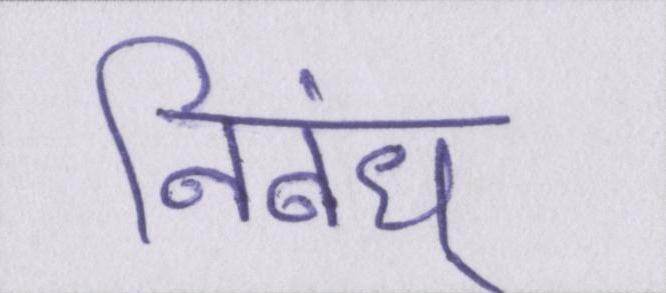 निबंध